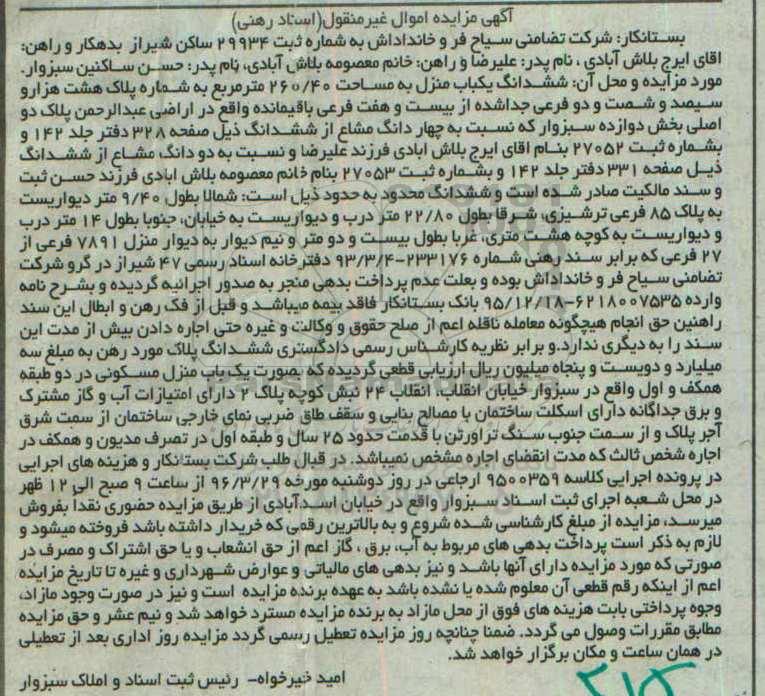 آگهی مزایده اموال غیرمنقول(اسناد رهنی)
بستانکار: شرکت تضامنی سیاح فر و خانداداش به شماره ثبت ۲۹۹۳۴ ساکن شیراز بدهکار و راهن:
اقای ایرج بلاش آبادی ، نام پدر: علیرضا و راهن: خانم معصومه بلاش آبادی، نام پدر: حسن ساکنین سبزوار.
مورد مزایده و محل آن: ششدانگ یکباب منزل به مساحت ۲۶۰/۴۰ مترمربع به شماره پلاک هشت هزارو
سیصد و شصت و دو فرعی جداشده از بیست و هفت فرعی باقیمانده واقع در اراضی عبدالرحمن پلاک دو
اصلی بخش دوازده سبزوار که نسبت به چهار دانگ مشاع از ششدانگ ذیل صفحه ۳۲۸ دفتر جلد ۱۴۲ و
بشماره ثبت ۲۷۰۵۲ بنام اقای ایرج بلاش ابادی فرزند علیرضا و نسبت به دو دانگ مشاع از ششدانگ
ذیل صفحه ۳۳۱ دفتر جلد ۱۴۲ و بشماره ثبت ۲۷۰۵۳ بنام خانم معصومه بلاش ابادی فرزند حسن ثبت
و سند مالکیت صادر شده است و ششدانگ محدود به حدود ذیل است: شمالا بطول ۹/۴۰ متر دیواریست
به پلاک ۸۵ فرعی ترشیزی، شرقا بطول ۲۲/۸۰ متر درب و دیواریست به خیابان، جنوبا بطول ۱۴ متر درب
و دیواریست به کوچه هشت متری، غربا بطول بیست و دو متر و نیم دیوار به دیوار منزل ۷۸۹۱ فرعی از
۲۷ فرعی که برابر سند رهنی شماره ۲۳۳۱۷۶-۹۳/۳/۴ دفترخانه اسناد رسمی ۴۷ شیراز در گرو شرکت
تضامنی سیاح فر و خانداداش بوده و بعلت عدم پرداخت بدهی منجر به صدور اجرائیه گردیده و بشرح نامه
وارده ۶۲۱۸۰۰۷۵۳۵-۹۵/۱۲/۱۸ بانک بستانکار فاقد بیمه میباشد و قبل از فک رهن و ابطال این سند
راهنین حق انجام هیچگونه معامله ناقله اعم از صلح حقوق و وکالت و غیره حتی اجاره دادن بیش از مدت این
سند را به دیگری ندارد.و برابر نظریه کارشناس رسمی دادگستری ششدانگ پلاک مورد رهن به مبلغ سه
میلیارد و دویست و پنجاه میلیون ریال ارزیابی قطعی گردیده که بصورت یک باب منزل مسکونی در دو طبقه
همکف و اول واقع در سبزوار خیابان انقلاب، انقلاب ۲۴ نبش کوچه پلاک ۲ دارای امتیازات آب و گاز مشترک
و برق جداگانه دارای اسکلت ساختمان با مصالح بنایی و سقف طاق ضربی نمای خارجی ساختمان از سمت شرق
آجر پلاک و از سمت جنوب سنگ تراورتن با قدمت حدود ۲۵ سال و طبقه اول در تصرف مدیون و همکف در
اجاره شخص ثالث که مدت انقضای اجاره مشخص نمیباشد. در قبال طلب شرکت بستانکار و هزینه های اجرایی
در پرونده اجرایی کلاسه ۹۵۰۰۳۵۹ ارجاعی در روز دوشنبه مورخه ۹۶/۳/۲۹ از ساعت ۹ صبح الی ۱۲ ظهر
در محل شعبه اجرای ثبت اسناد سبزوار واقع در خیابان اسدآبادی از طریق مزایده حضوری نقدا بفروش
میرسد، مزایده از مبلغ کارشناسی شده شروع و به بالاترین رقمی که خریدار داشته باشد فروخته میشود و
لازم به ذکر است پرداخت بدهی های مربوط به آب، برق ، گاز اعم از حق انشعاب و یا حق اشتراک و مصرف در
صورتی که مورد مزایده دارای آنها باشد و نیز بدهی های مالیاتی و عوارض شهرداری و غیره تا تاریخ مزایده
اعم از اینکه رقم قطعی آن معلوم شده یا نشده باشد به عهده برنده مزایده است و نیز در صورت وجود مازاد،
وجوه پرداختی بابت هزینه های فوق از محل مازاد به برنده مزایده مسترد خواهد شد و نیم عشر و حق مزایده
مطابق مقررات وصول می گردد. ضمنا چنانچه روز مزایده تعطیل رسمی گردد مزایده روز اداری بعد از تعطیلی
در همان ساعت و مکان برگزار خواهد شد.
امید خیرخواه- رئیس ثبت اسناد و املاک سبزوار